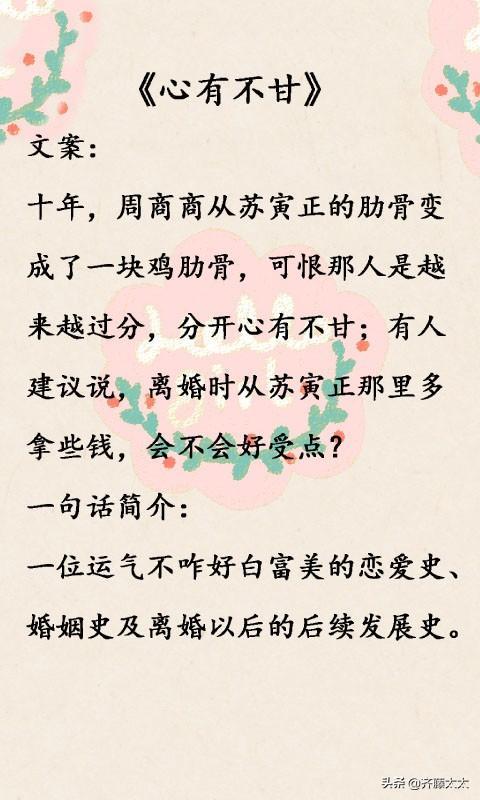 《心有不甘》
文案：
十年，周商商从苏寅正的肋骨变
成了一块鸡肋骨，可恨那人是越
来越过分，分开心有不甘；有人
建议说，离婚时从苏寅正那里多
拿些钱，会不会好受点？
一句话简介：
一位运气不咋好白富美的恋爱史、
婚姻史及离婚以后的后续发展史。
头条 @齐藤太太